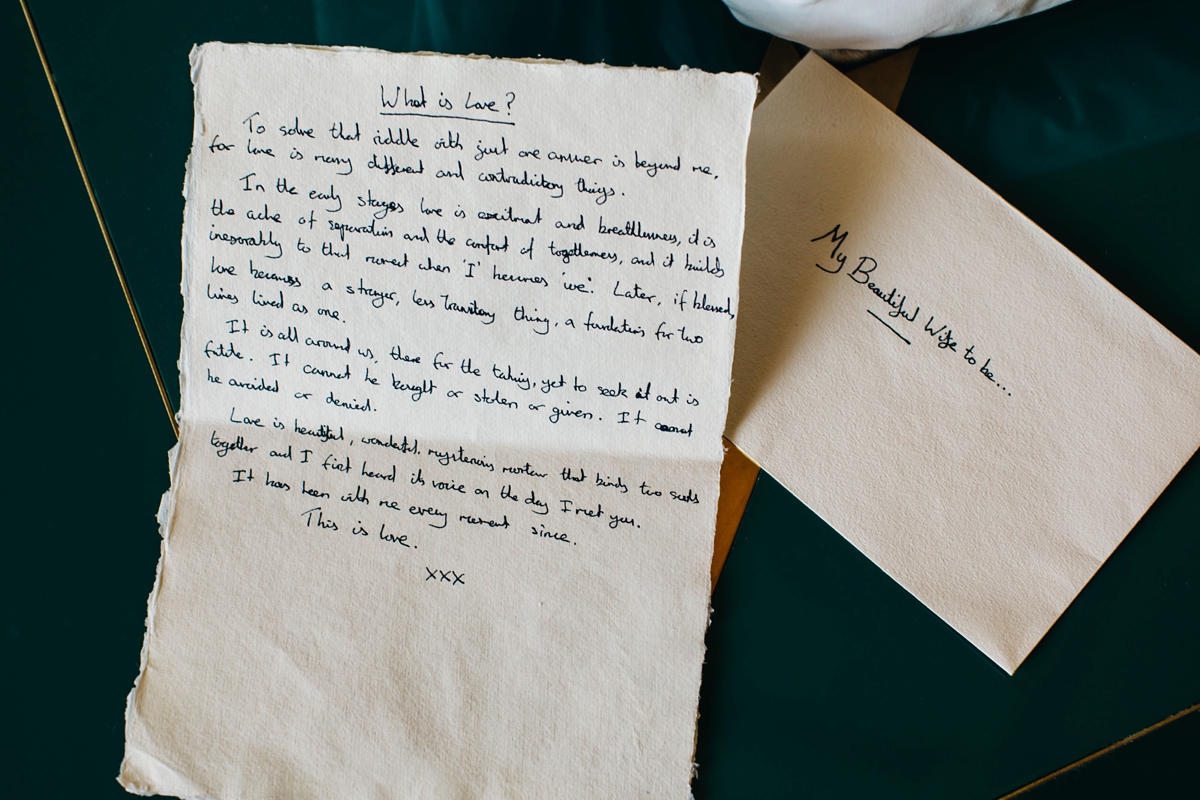 What is Love?
To solve that riddle with just one answer is beyond me,
for love is many different and contradictory things.
In the early stages love is excitment and breathlessness, it is
the ache of separation and the comfort of togetherness, and it builds
inexorably to that moment when 'I' becomes 'we'. Later, if blessed,
love becomes a stronger, less transitory thing, a foundation for two
lives lived as one.
It is all around us, there for the taking, yet to seek it out is
futile. It cannot be bought or stolen or given. It cannot
be avoided or denied.
Love is beautiful, wonderful, mysterious mortar that binds two souls
together and I first heard its voice on the day I met you.
It has been with me every moment since.
This is love.
xxx
My Beautiful Wife to be...